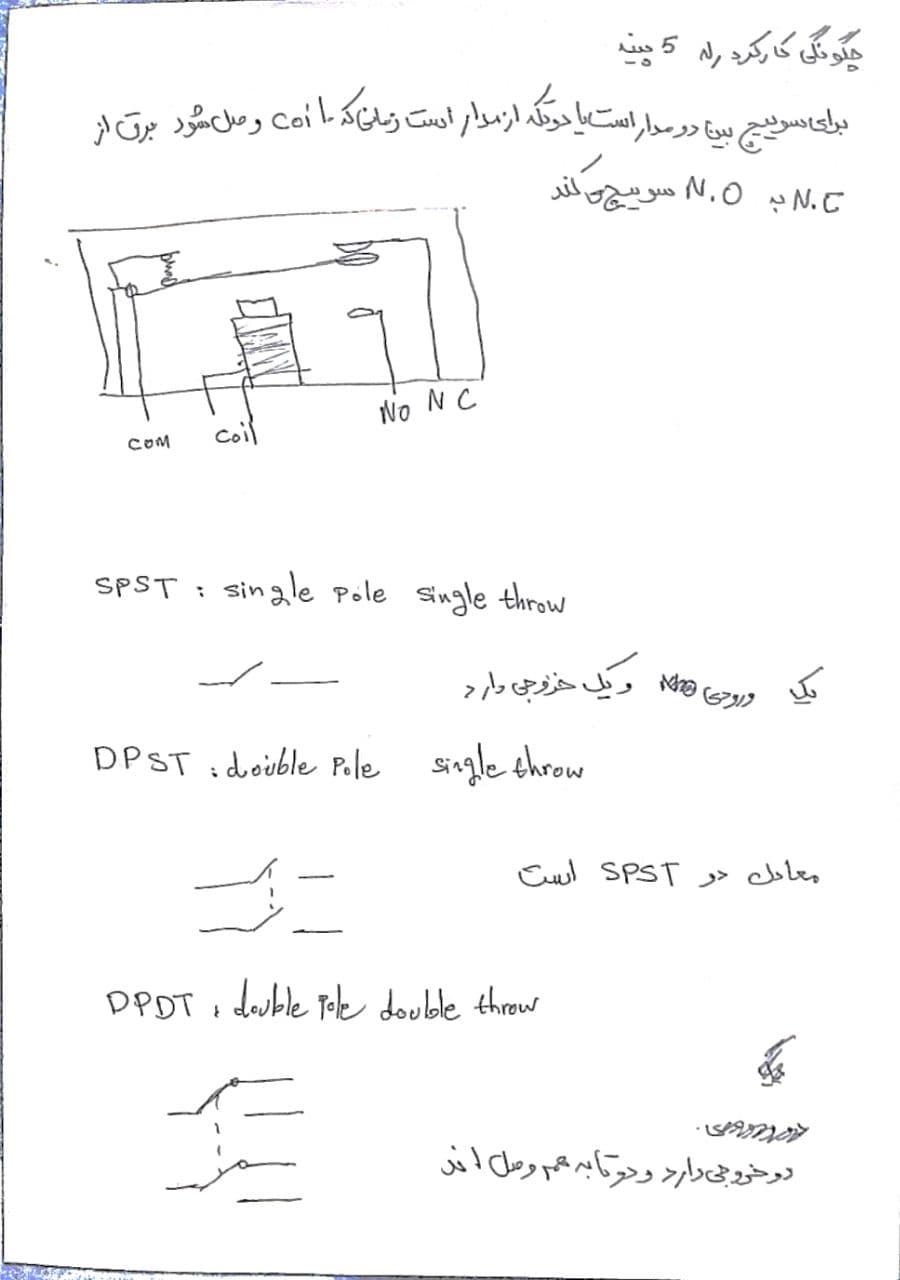 چگونگی کارکرد رله 5 پینه
برای سوییچ بین دو مدار است یا دوتکه از مدار است زمانی که coil وصل شود برق از
N.C به N.O سوییچ می کند
COM Coil NO N C
SPST : single pole single throw
یک ورودی و یک خروجی دارد
DPST : double Pole single throw
معادل دو SPST است
DPDT : double Pole double throw
دو خروجی دارد و دوتا به هم وصل اند